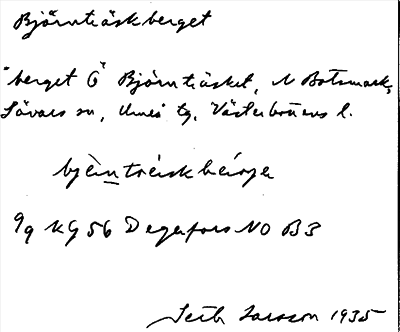 Björnträskberget
"berget Ö" Björnträsket, N Botsmark,
Sävars sn, Umeå tg, Västerbottens l.
9g KG 56 Degerfors NO B3
Seth Larsson 1935